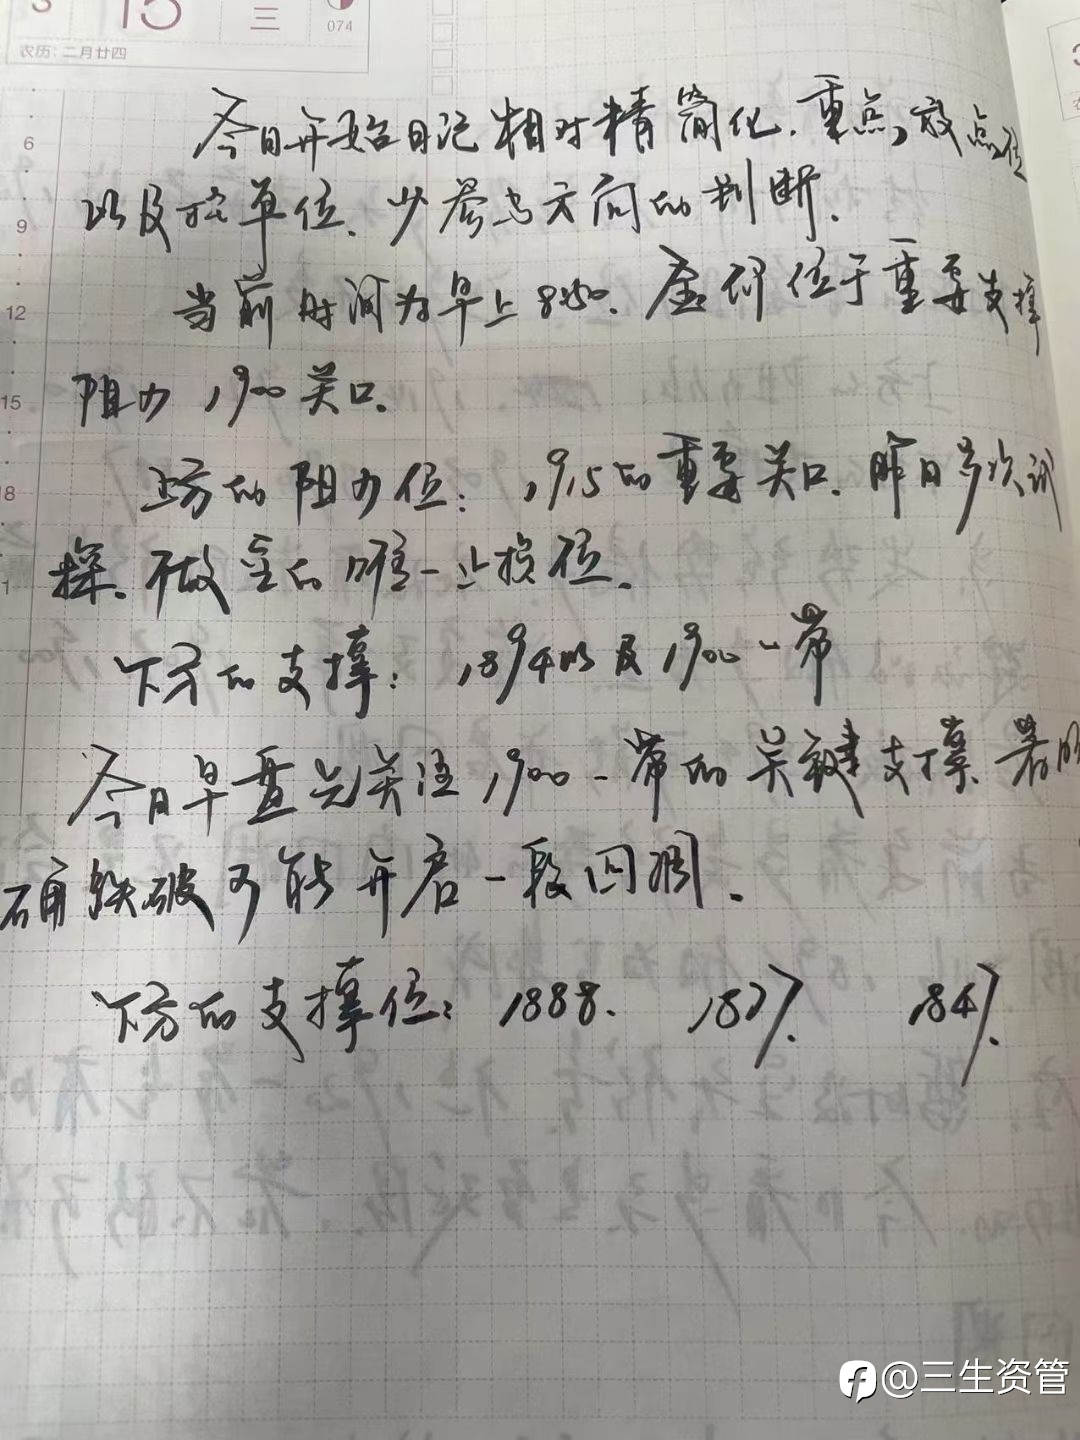 3 15 三 074
农历:二月廿四
今日开始日记相对精简化.重点放点位
以及挂单位、少参与方向的判断.
当前时间为早上8:50.金价位于重要支撑
阻力1900关口.
上方的阻力位:1915的重要关口.昨日多次试
探.做空的唯一止损位.
下方的支撑:1894以及1900一带
今日早盘先关注1900一带的关键支撑.若明
确跌破可能开启一段回调.
下方的支撑位:1888. 1877. 1847.
6
9
12
15
18
@三生资管